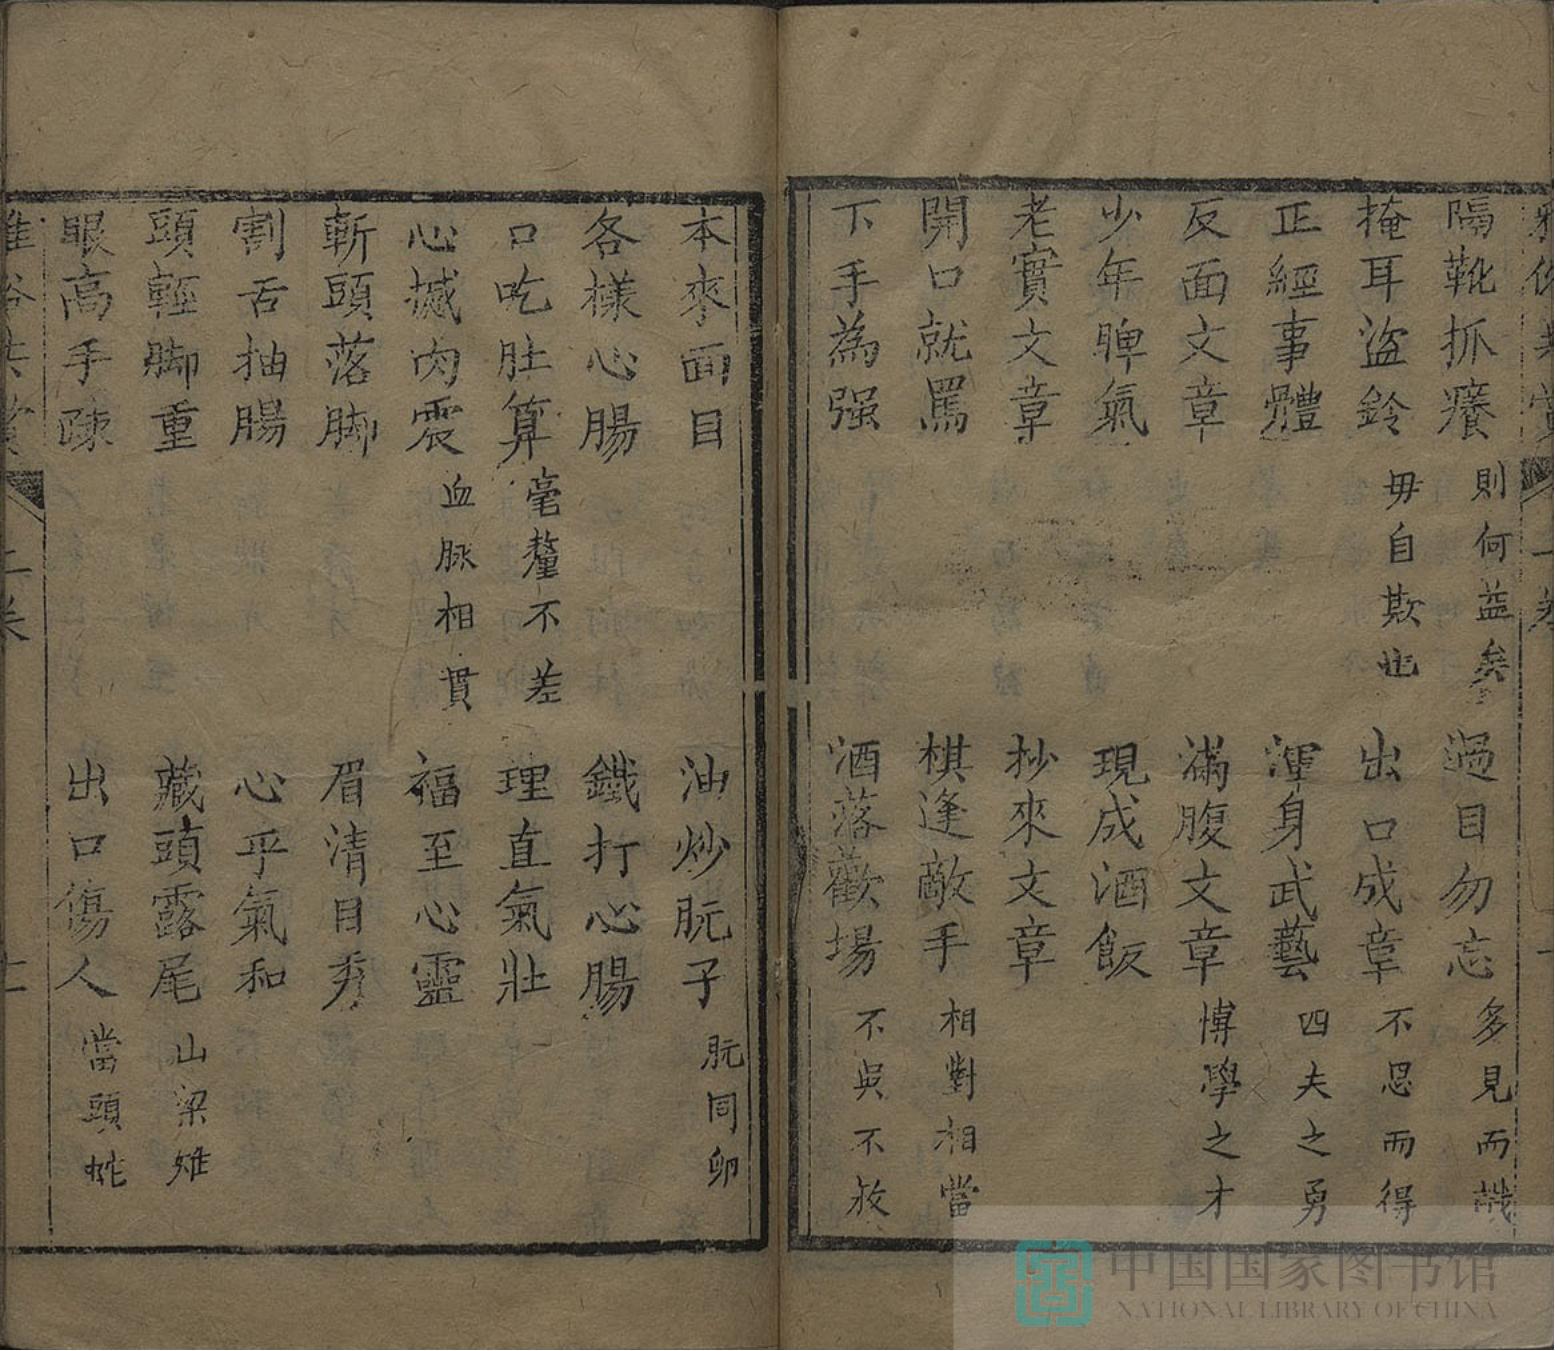 隔靴抓癢 則何益矣 過目勿忘 多見而識
掩耳盜鈴 毋自欺也 出口成章 不思而得
正經事體 渾身武藝 四夫之勇
反面文章 滿腹文章 博學之才
少年脾氣 現成酒飯
老實文章 抄來文章
開口就罵 棋逢敵手 相對相當
下手為强 酒落歡場 不吳不敖
本來面目 油炒朊子 朊同卵
各樣心腸 鐵打心腸
口吃肚算 毫釐不差 理直氣壯
心撼肉震 血脉相貫 福至心靈
斬頭落脚 眉清目秀
割舌抽腸 心乎氣和
頭輕脚重 藏頭露尾 山梁雉
眼高手疎 出口傷人 當頭蛇
上
中国国家图书馆
NATIONAL LIBRARY OF CHINA